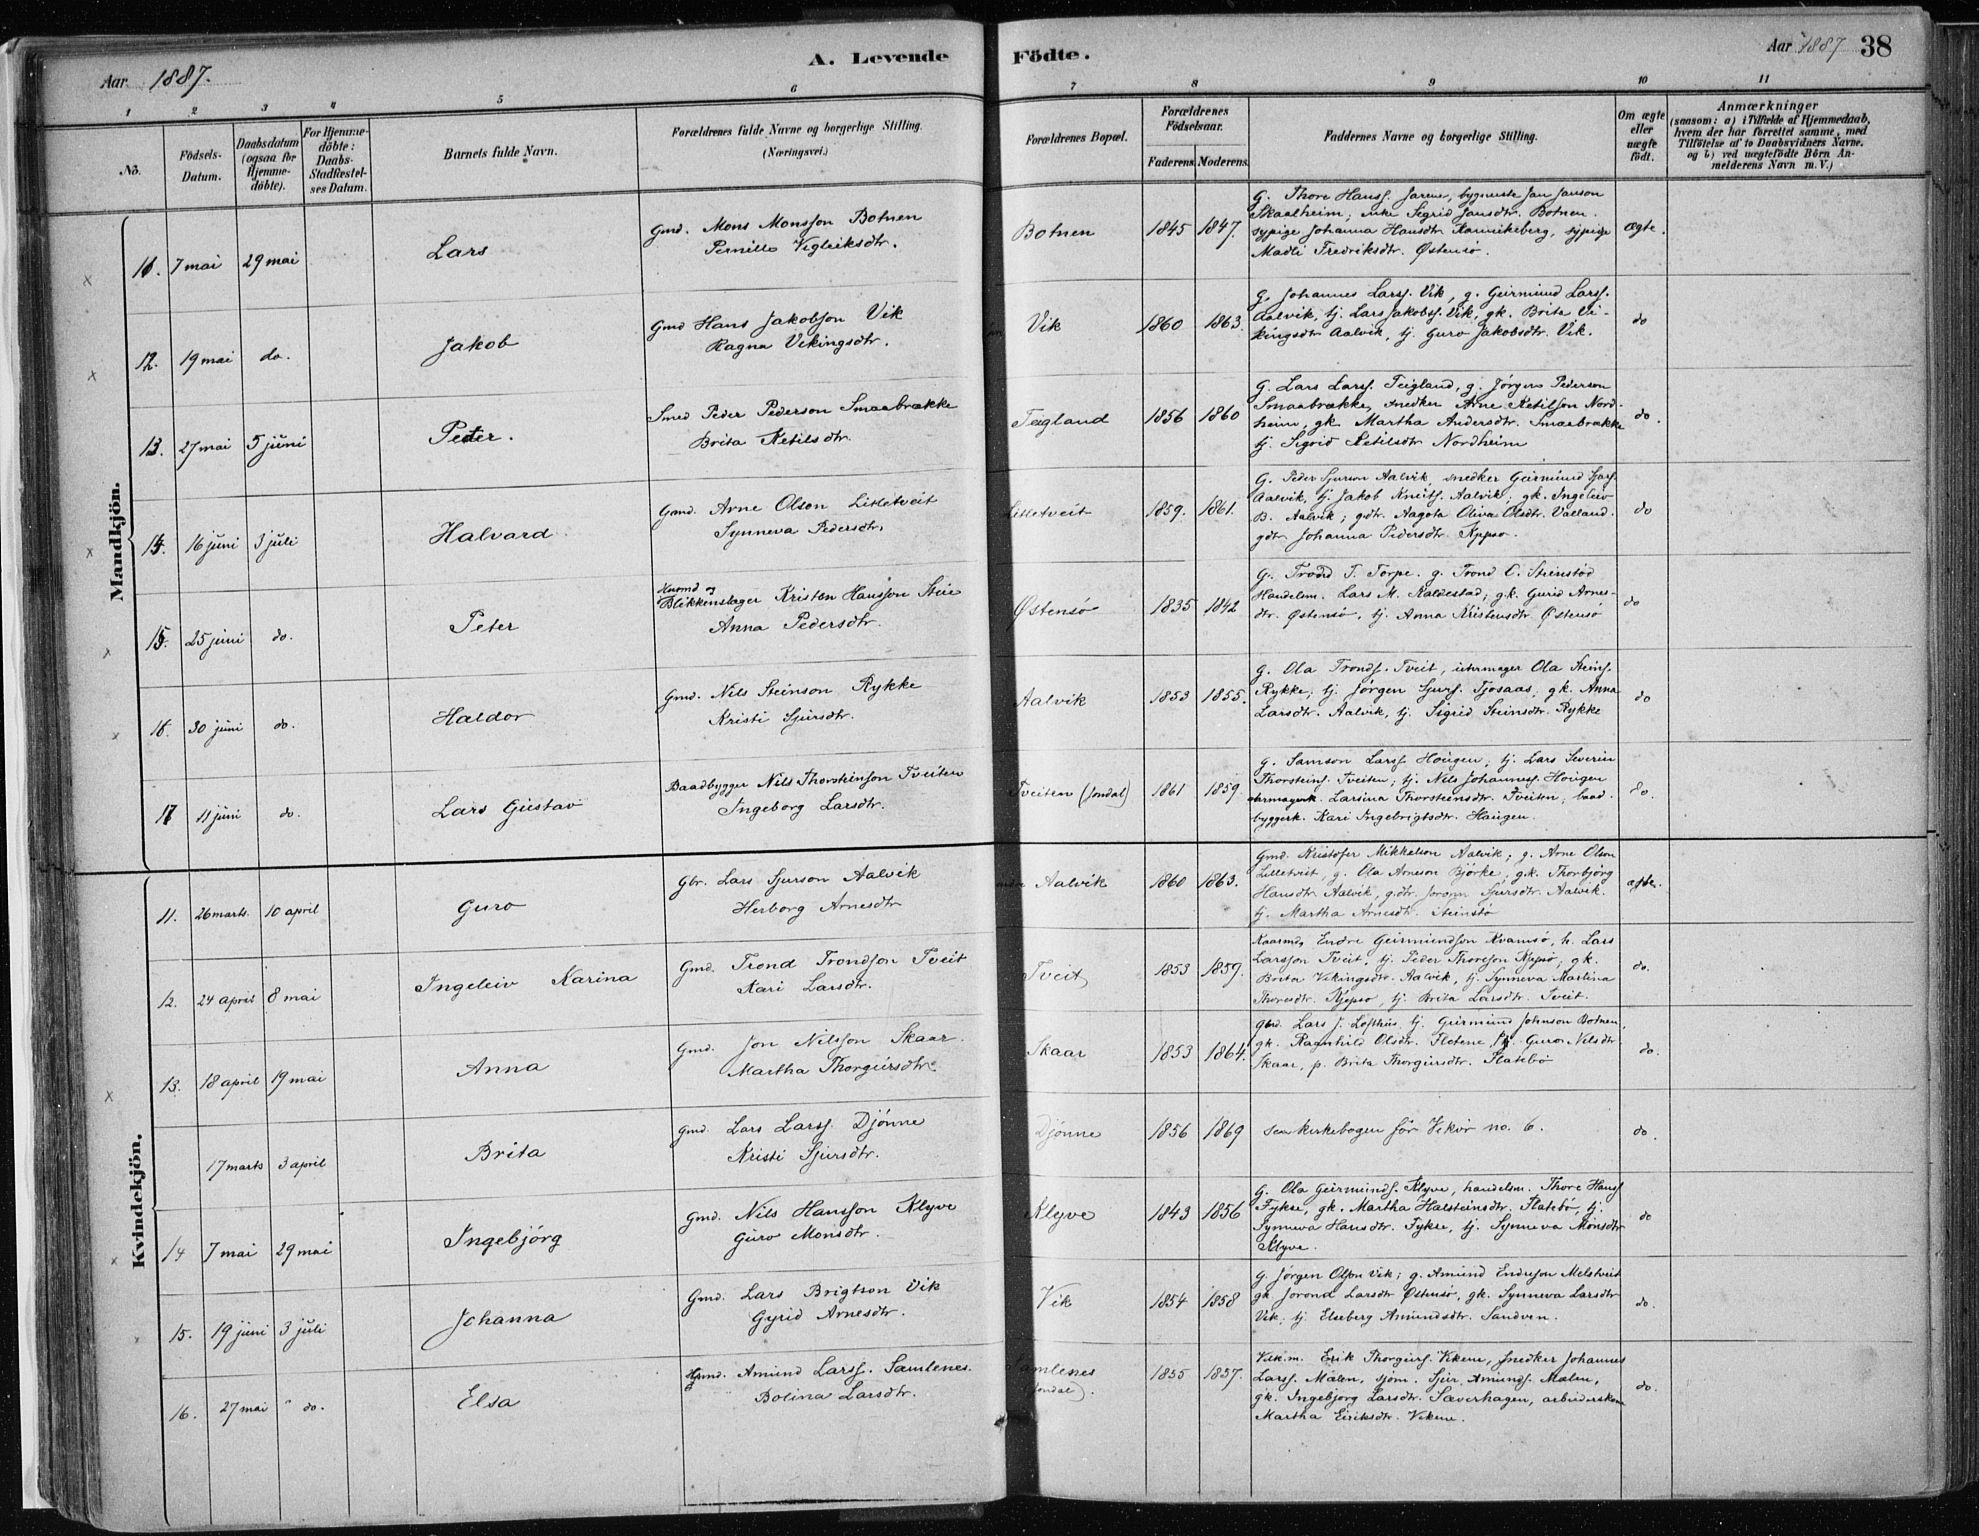 Aar 1887.
A. Levende
Födte.
Aar 1887
38
1 2 3 4 5 6 7 8 9 10 11
No.
Födsels-
Datum.
Daabsdatum
(ogsaa for
Hjemme-
döbte).
For Hjemme-
döbte:
Daabs-
Stadfæstel-
ses Datum.
Barnets fulde Navn.
Forældrenes fulde Navne og borgerlige Stilling.
(Næringsvei.)
Forældrenes Bopæl.
Forældrenes
Födselsaar.
Faderens. Moderens.
Faddernes Navne og borgerlige Stilling.
Om ægte
eller
uægte
födt.
Anmærkninger
(saasom: a) i Tilfælde af Hjemmedaab,
hvem der har forrettet samme, med
Tilföielse af to Daabsvidners Navne.
og b) ved uægtefödte Börn An-
melderens Navn m. V.)
Mandkjön.
11. 7 mai 29 mai Lars
Gmd. Mons Monsson Botnen
Pernille Vigleiksdtr.
Botnen 1845 1847.
G. Thore Hanss. Jarene, bygmeste Jan Janson
Skaalheim; enke Sigrid Jansdtr. Botnen.
sypige Johanna Hansdtr Kannikeberg, sypige
Madli Fredriksdtr. Østensö.
ægte.
12. 19 mai do. Jakob
Gmd Hans Jakobson Vik
Ragna Vikingsdtr.
Vik 1860 1863.
G. Johannes Larss. Vik, g. Geirmund Larss.
Aalvik, tj. Lars Jakobss. Vik, gk. Brita Vi-
kingsdtr Aalvik, tj. Guro Jakobsdtr. Vik.
do
13. 27 mai 5 juni Peter.
Smed Peder Pederson Smaabrække
Brita Ketilsdtr.
Teigland 1856 1860
G. Lars Larss. Teigland, g. Jörgen Pederson
Smaabrække, snedker Arne Ketilson Nord-
heim, gk. Martha Andersdtr. Smaabrække
tj. Sigrid Ketilsdtr Nordheim
do.
14. 16 juni 3 juli Halvard
Gmd. Arne Olson Litletveit
Synneva Pedersdtr.
Litletveit 1859. 1861.
G. Peder Sjurson Aalvik, snedker Geirmund Sjurs.
Aalvik, tj. Jakob Kneits. Aalvik; gk. Ingeleiv
B. Aalvik; gdtr. Aagota Oliva Olsdtr. Valland.
gdtr Johanna Pedersdtr. Kjepsö.
do
15. 25 juni do. Peter
Husmd og
Blikkenslager Kristen Hansson Steie
Anna Pedersdtr.
Østensö 1835 1842
G. Trond T. Torpe. g. Trond C. Steinstöd
Handelsm. Lars M. Kaldestad; gk. Gurid Arnes-
dtr. Østensö, tj. Anna Kristensdtr. Østensö
do
16. 30 juni do. Haldor
Gmd. Nils Steinson Rykke
Kristi Sjursdtr.
Aalvik 1853 1855.
G. Ola Tronds. Tveit, uhrmager Ola Steins.
Rykke; tj. Jörgen Sjurs. Tjosaas; gk. Anna
Larsdtr. Aalvik, tj. Sigrid Steinsdtr. Rykke
do
17 11 juni do. Lars Gustav
Baadbygger Nils Thorsteinson Tveiten
Ingeborg Larsdtr.
Tveiten (Jondal) 1861 1859.
G. Samson Larss. Hougen; tj. Lars Severin
Thorsteins. Tveiten; tj. Nils Johanness. Hougen
uhrmagerk. Larsina Thorsteinsdtr. Tveiten; baad-
byggerk. Kari Ingebrigtsdtr. Haugen.
do.
Kvindekjön.
11. 26 marts. 10 april Guro
Gbr. Lars Sjurson Aalvik
Herborg Arnesdtr
Aalvik 1860 1863.
Gmd. Kristofer Mikkelson Aalvik; g. Arne Olson
Lilletveit, g. Ola Arneson Björke; gk. Thorbjörg
Hansdtr Aalvik, gdtr. Joronn Sjursdtr. Aalvik.
tj. Martha Arnesdtr. Steinstö
ægte.
12. 24 april 8 mai Ingeleiv Karina
Gmd. Trond Trondson Tveit
Kari Larsdtr.
Tveit 1853 1859.
Kaarmd. Endre Geirmundson Kvamsö, h. Lars
Larsson Tveit, tj. Peder Thoreson Kjepsö; gk.
Brita Vikingsdtr. Aalvik, tj. Synneva Martina
Thoresdtr. Kjepsö, tj. Brita Larsdtr. Tveit.
do.
13. 18 april 19 mai Anna
Gmd. Jon Nilsson Skaar.
Martha Thorgiersdtr.
Skaar 1853 1864.
Gbrd. Lars J. Lofthus, tj. Geirmund Johnson Botnen,
gk. Ragnhild Olsdtr. Flotene, Guro Nilsdtr
Skaar, p. Brita Thorgiersdtr. Flatebö
do.
17 marts 3 april Brita
Gmd. Lars Larss. Djönne
Kristi Sjursdtr.
Djönne 1856 1869
see kirkebogen for Vikör no. 6.
do.
14 7 mai 29 mai Ingebjörg
Gmd. Nils Hansson Klyve
Guro Monsdtr.
Klyve 1843 1856
G. Ola Geirmunds. Klyve, handelsm. Thore Hanss
Fykse, gk. Martha Halsteinsdtr. Flatebö, tj.
Synneva Hansdtr. Fykse, tj. Synneva Monsdtr
Klyve.
do
15. 19 juni 3 juli Johanna
Gmd. Lars Brigtson Vik
Gyrid Arnesdtr.
Vik 1854 1858
G. Jörgen Olson Vik; g. Amund Endreson Melstveit
gk Jorond Larsdtr Østensö, gk. Synneva Larsdtr
Vik, tj. Elseberg Amundsdtr. Sandven.
do.
16. 27 mai do. Elsa
Hsmd. Amund Larss. Samlenes.
Bolina Larsdtr.
Samlenes
(Jondal). 1855 1857.
Erik Thorgiers. Vikene, snedker Johannes
Larss. Mælen, sjöm. Sjur Amunds. Mælen,
gk. Ingebjörg Larsdtr. Sæverhagen, arbeiderske
Martha Eiriksdtr. Vikene.
do.